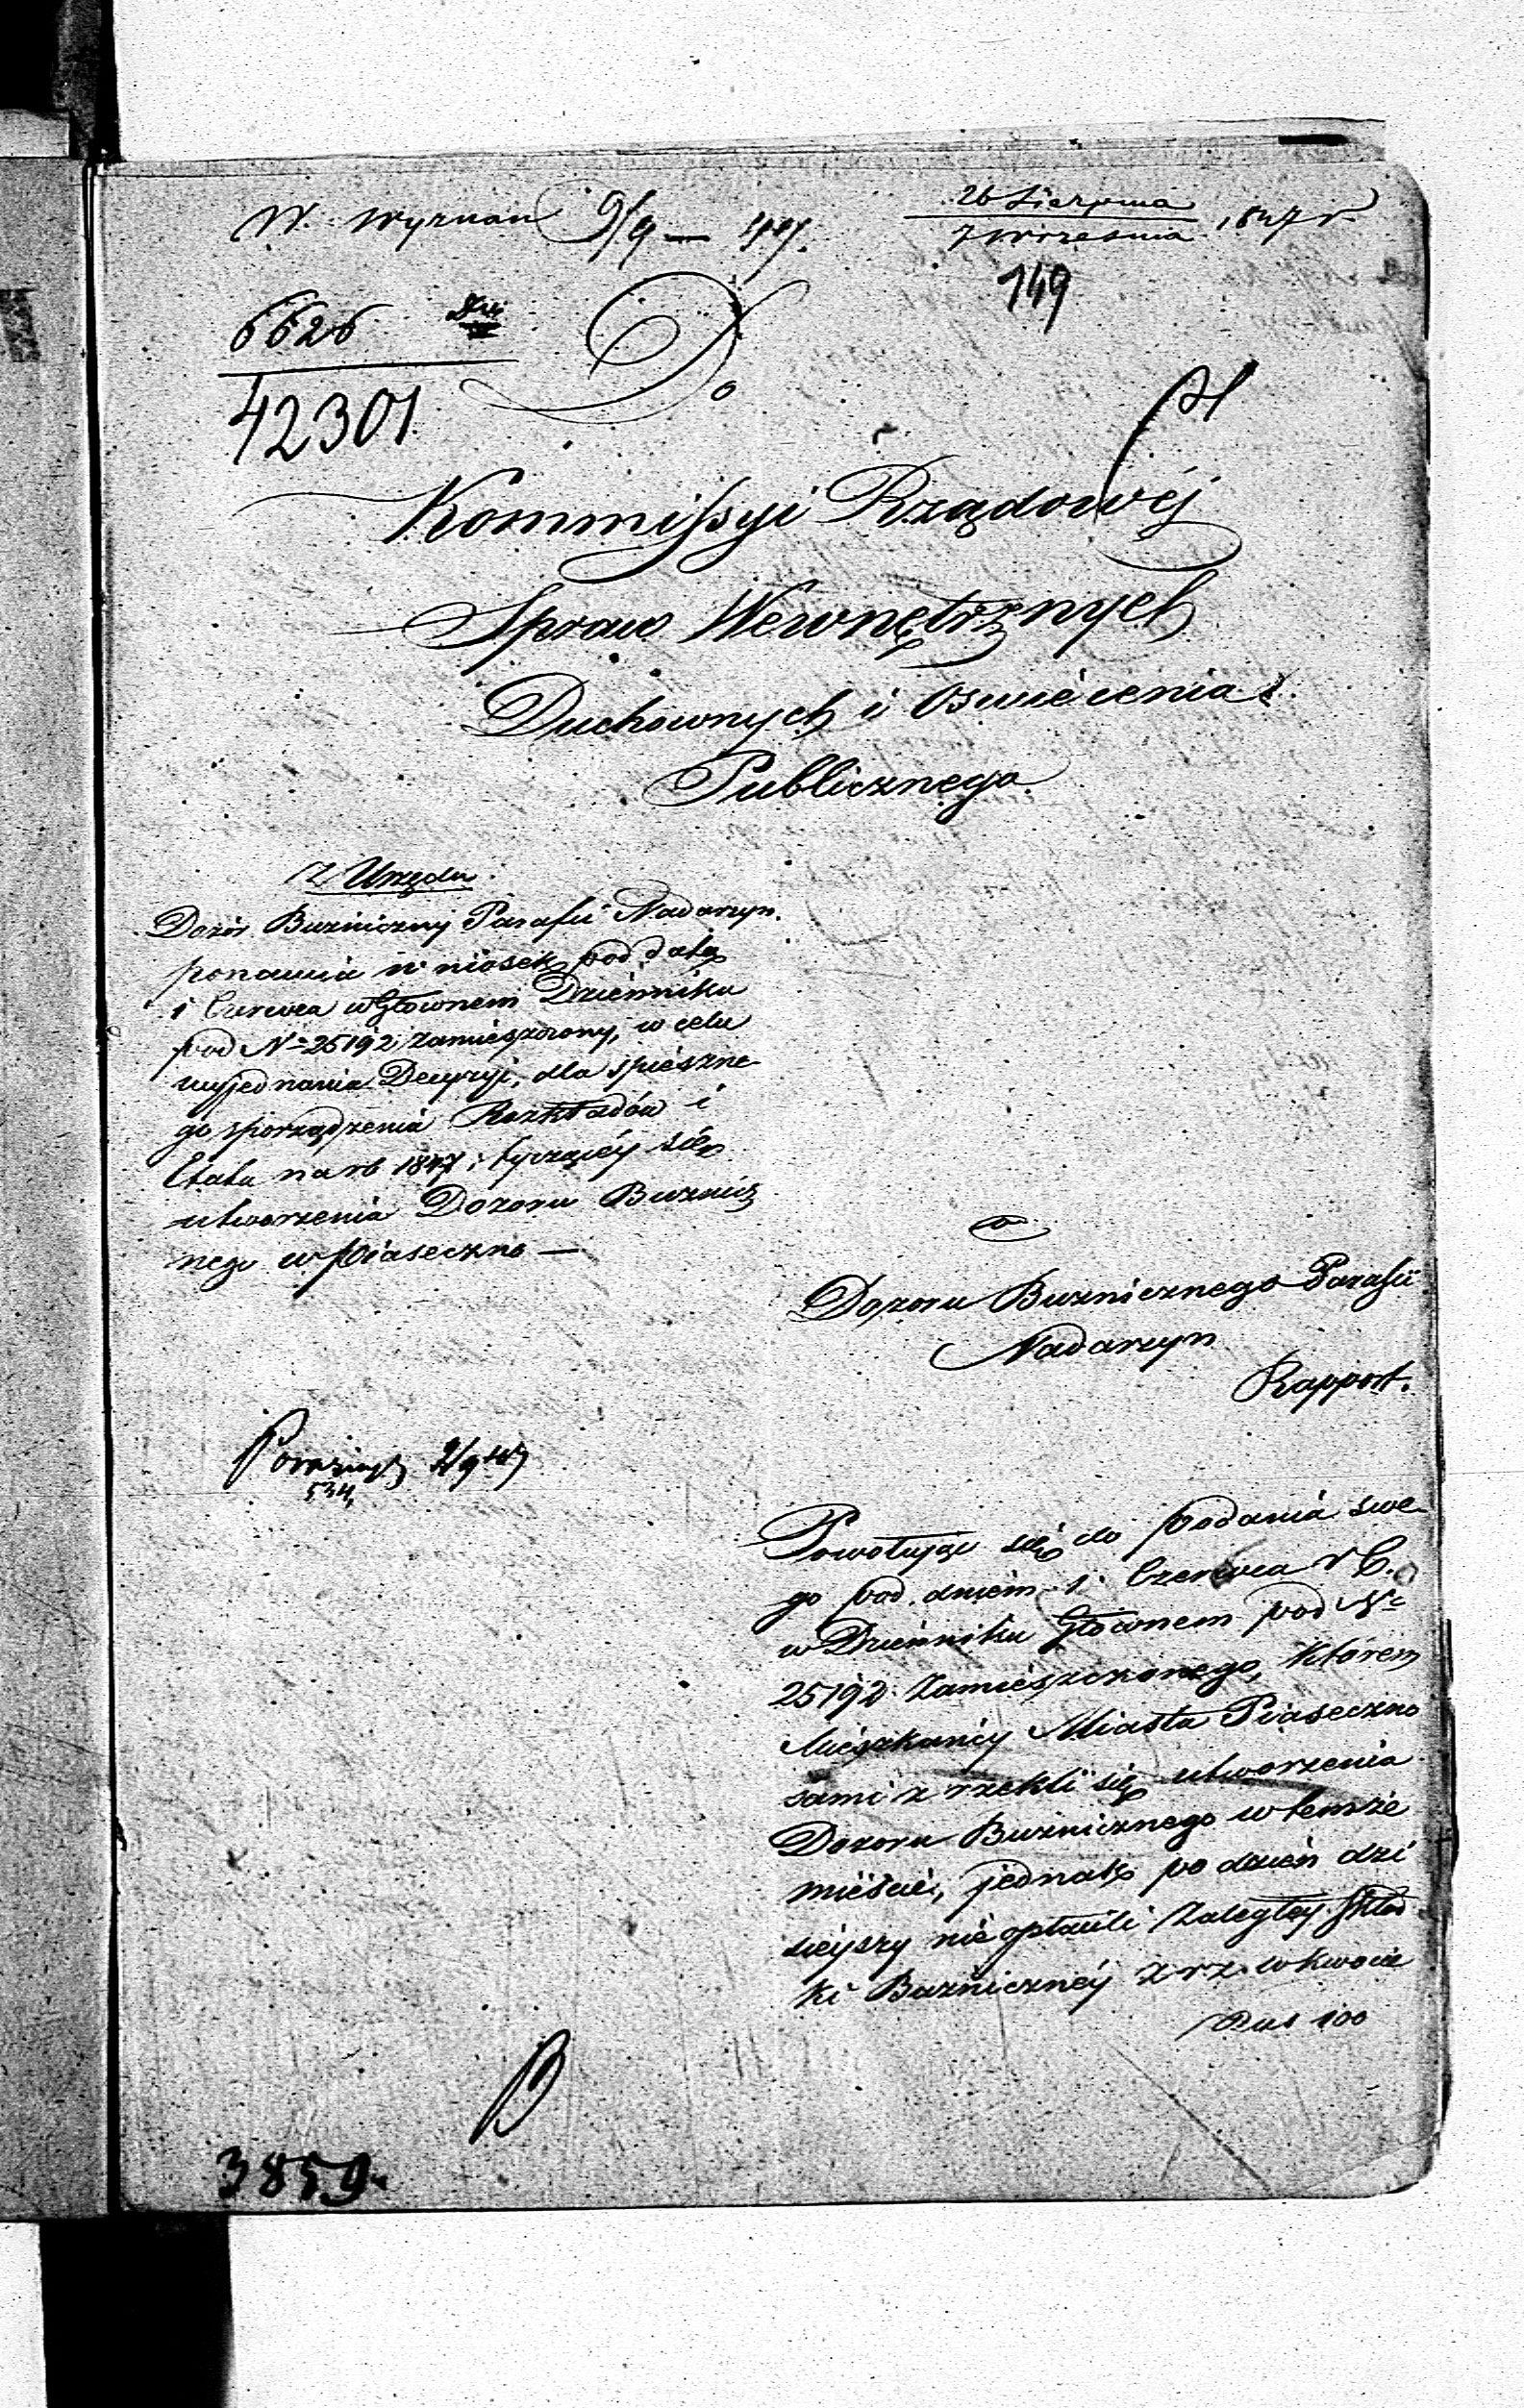 W. Wyznań 9/9 — 47.
26 Sierpnia
7 Września 1847 r
149
6626
42301
Do
Kommissyi Rządowéj
Spraw Wewnętrznych
Duchownych i Oswiécenia
Publicznego.
Z Urzędu.
Dozór Buzniczny Parafii Nadarzyn.
ponawia wniosek pod datą
1 Czerwca w Głownem Dzienniku
pod Nº 25192 zamieszczony, w celu
wyjednania Decyzyi, dla spieszne-
go sporządzenia Rozkładów i
Etatu na rb 1847; tyczącéy się
utworzenia Dozoru Buznicz
nego w Piaseczno —
Dozoru Buznicznego Parafii
Nadarzyn
Rapport.
9/9 47
534,
Powołując się do podania swe-
go pod dniem 1 Czerwca r b.
w Dzienniku Głownem pod Nº
25192 Zamieszczonego, którem
Mieszkańcy Miasta Piaseczno
sami zrzekli się utworzenia
Dozoru Buznicznego w temże
mieście, jednak po dzień dzi
sieyszy nie opłacili Zaległey Skład
ki Bużnicznéy z r z. w kwocie
Rus 100
3859.